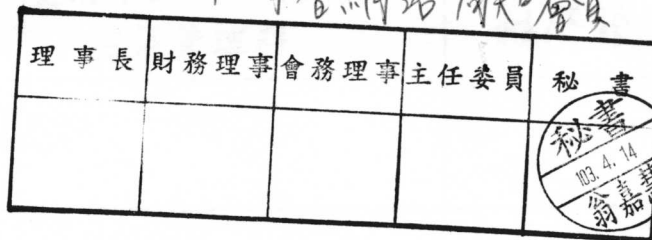 會員
理事長 財務理事 會務理事 主任委員 秘書
秘書
103.4.14
翁嘉